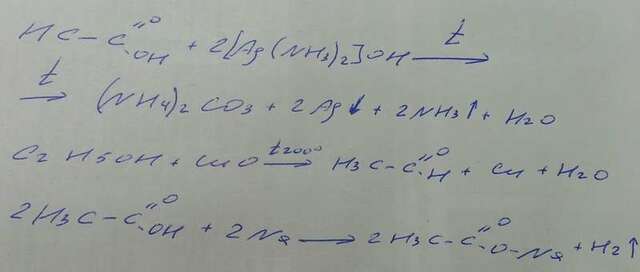 HC-C=O OH + 2[Ag(NH3)2]OH t→
t→ (NH4)2CO3 + 2Ag↓ + 2NH3↑ + H2O
C2H5OH + CuO t2000→ H3C-C=O H + Cu + H2O
2H3C-C=O OH + 2Na → 2H3C-C=O O-Na + H2↑